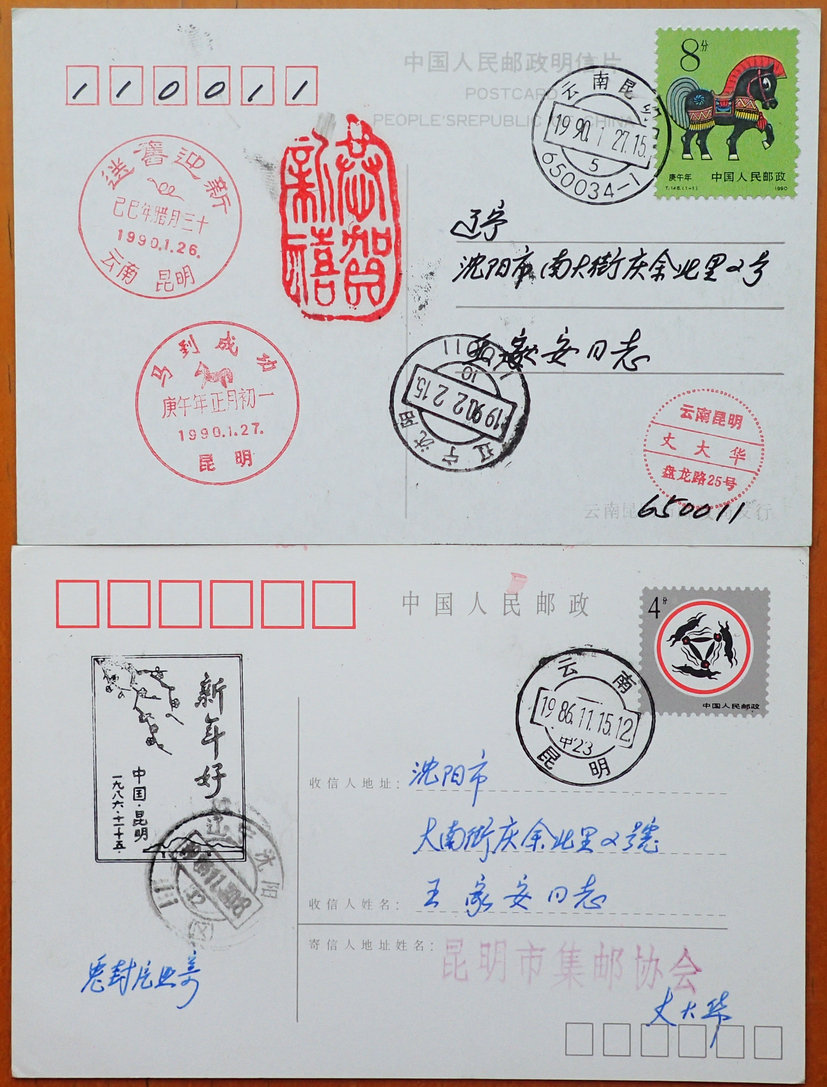 中国人民邮政明信片
POSTCARD
PEOPLE'S REPUBLIC CHINA
110011
8分
庚午年 中国人民邮政
T.146.(1-1) 1990
云南昆
1990.1.27.15
5
650034-1
送蛇迎新
己巳年腊月三十
1990.1.26.
云南 昆明
恭贺
新禧
辽宁
沈阳市大南街庆余北里2号
王家安同志
马到成功
庚午年正月初一
1990.1.27.
昆明
辽宁沈阳
1990.2.2.15
云南昆明
丈大华
盘龙路25号
650011
中国人民邮政
4分
中国人民邮政
云南
1986.11.15.12
甲23
昆明
新年好
中国·昆明
一九八六·十一·十五·
沈阳
收信人地址：沈阳市
大南街庆余北里2号
收信人姓名：王家安同志
寄信人地址姓名：昆明市集邮协会
丈大华